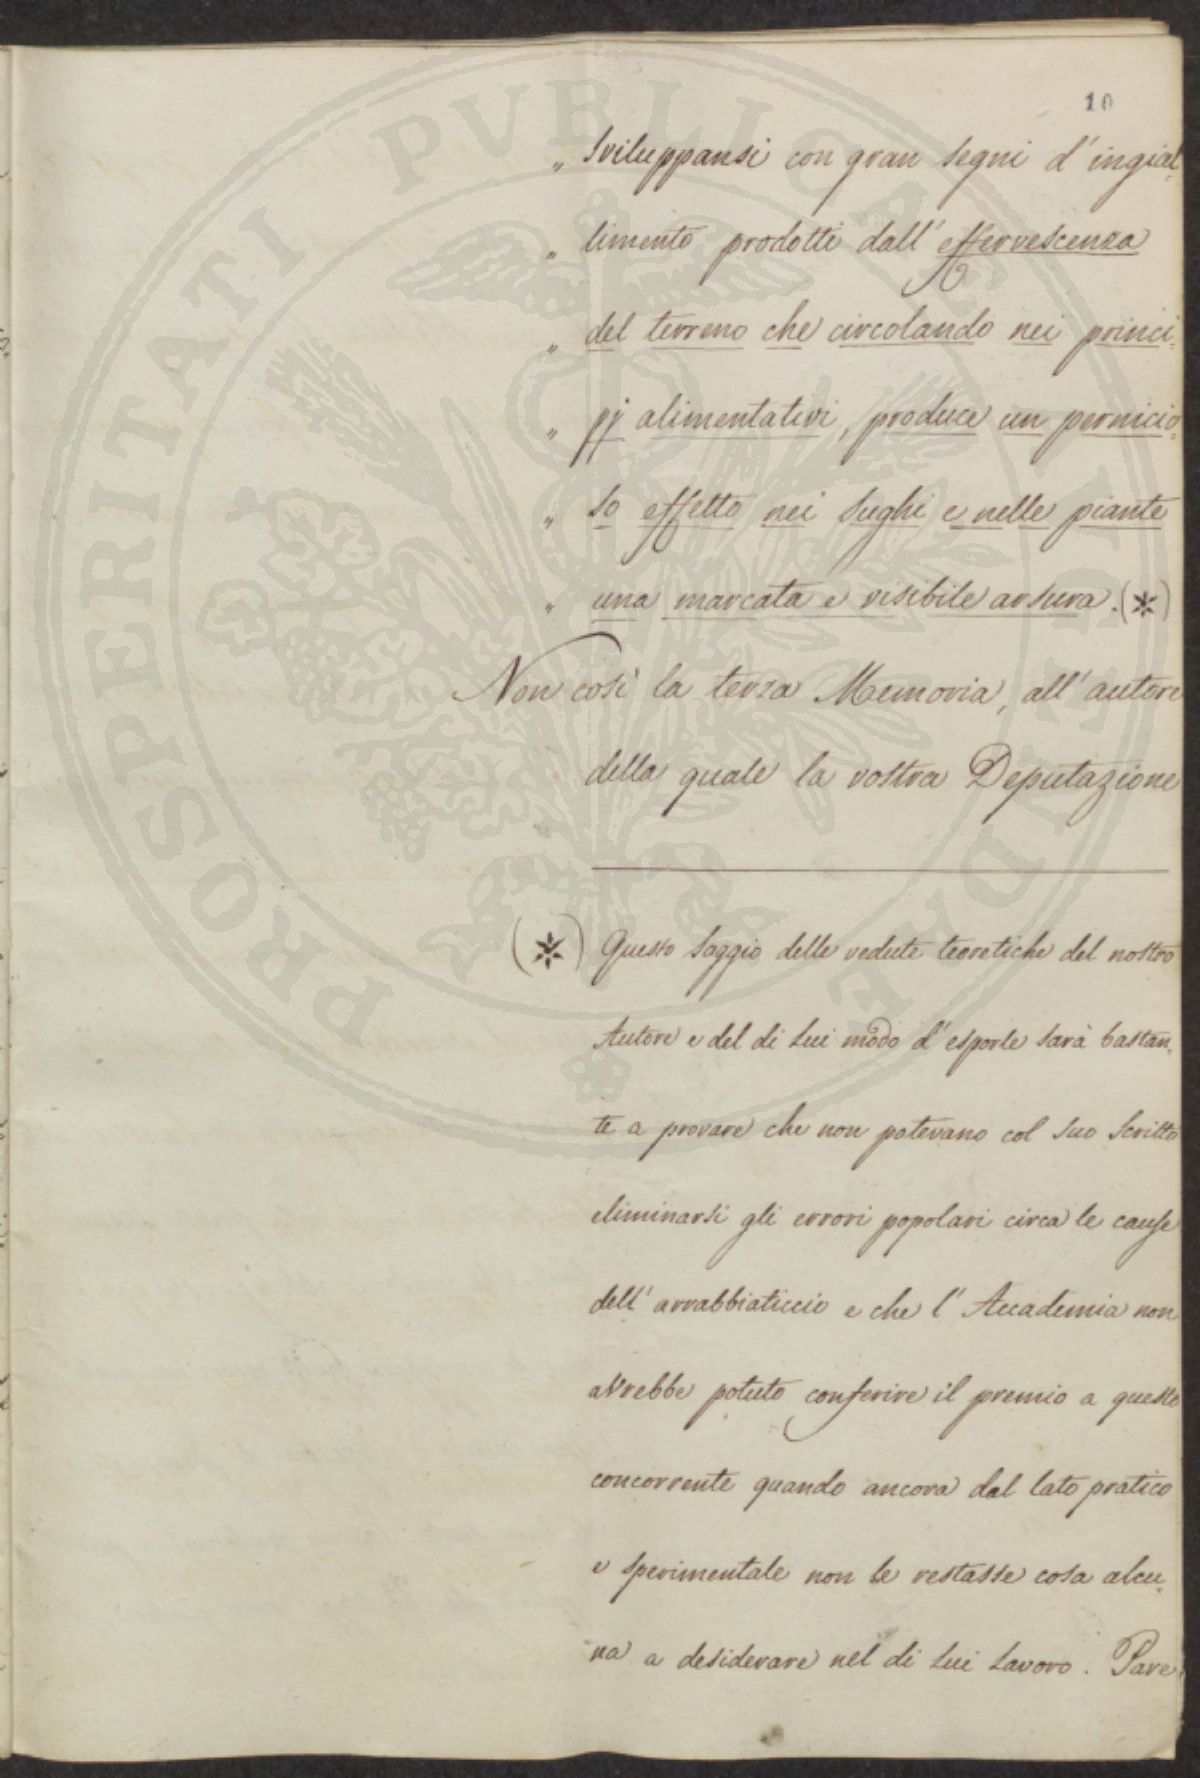 10
„ Sviluppansi con gran segni d'ingial-
„ limento prodotti dall'effervescenza
„ del terreno che circolando nei princi-
„ pj alimentativi, produce un pernicio-
„ so effetto nei sughi e nelle piante
„ una marcata e visibile arsura. (*)
Non così la terza Memoria, all'autore
della quale la vostra Deputazione
(*) Questo saggio delle vedute teoretiche del nostro
Autore e del di Lui modo d'esporle sarà bastan-
te a provare che non potevano col suo scritto
eliminarsi gli errori popolari circa le cause
dell'arrabbiaticcio e che l'Accademia non
avrebbe potuto conferire il premio a questo
concorrente quando ancora dal lato pratico
e sperimentale non le restasse cosa alcu-
na a desiderare nel di Lui Lavoro. Pare
PROSPERITATI PVBLICAE AVGENDAE